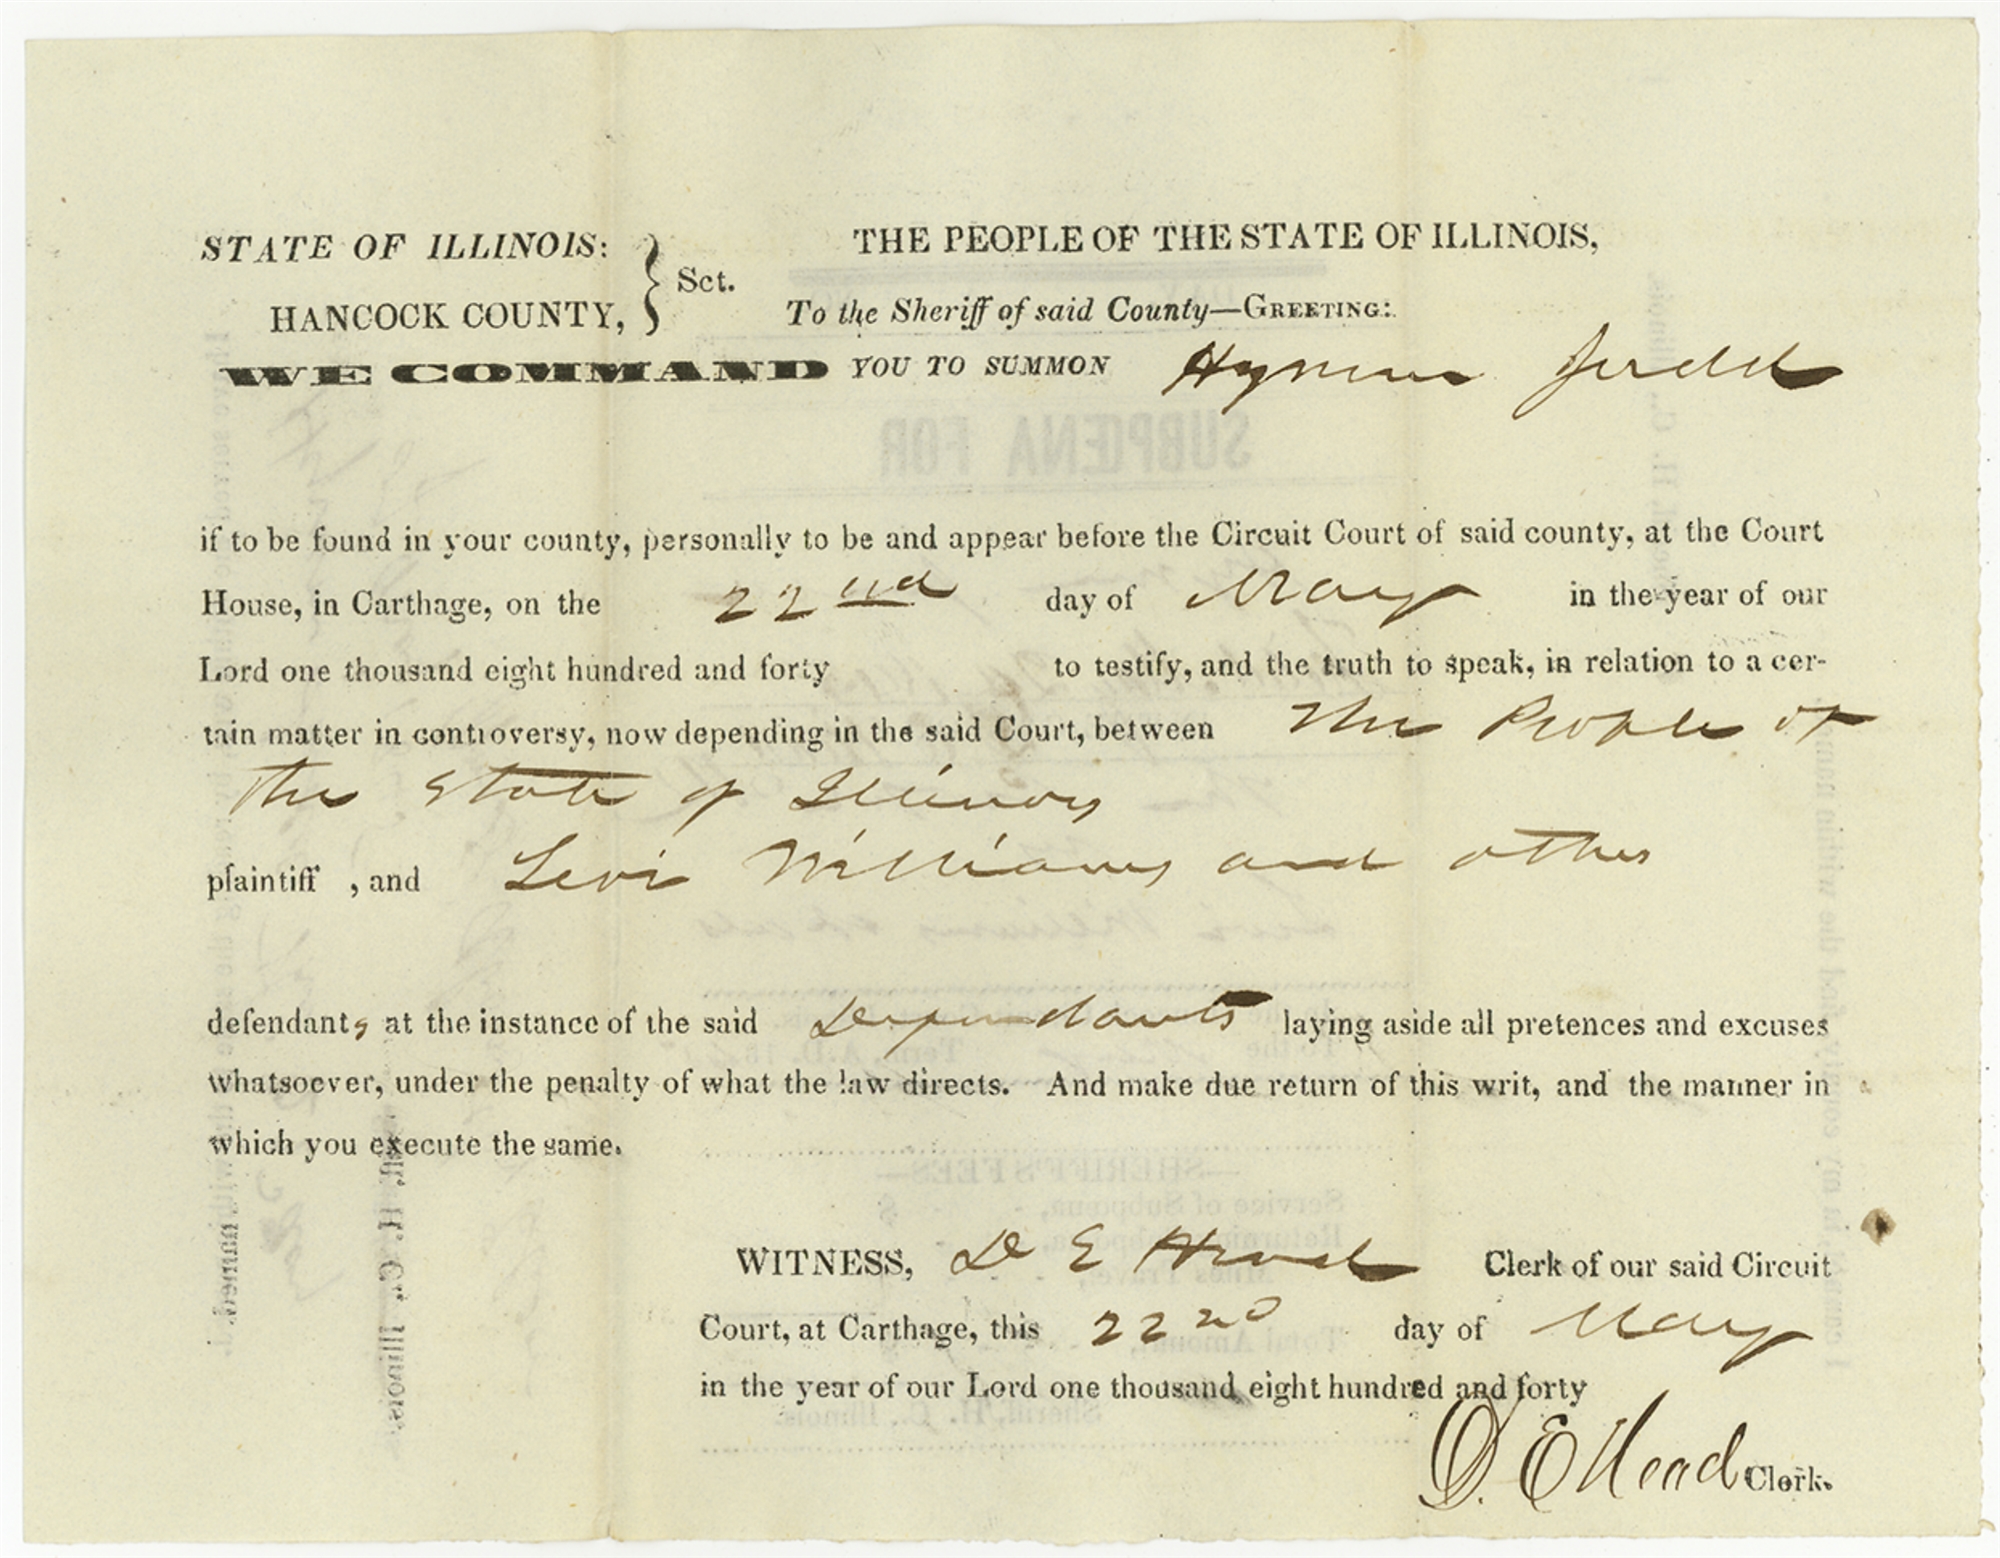 STATE OF ILLINOIS:
HANCOCK COUNTY,
Sct.
THE PEOPLE OF THE STATE OF ILLINOIS,
To the Sheriff of said County—GREETING:
WE COMMAND YOU TO SUMMON Hyman Judd
SUBPŒNA FOR
if to be found in your county, personally to be and appear before the Circuit Court of said county, at the Court
House, in Carthage, on the 22nd day of May in the year of our
Lord one thousand eight hundred and forty to testify, and the truth to speak, in relation to a cer-
tain matter in controversy, now depending in the said Court, between The People of
the State of Illinois
plaintiff , and Levi Williams and other
defendants at the instance of the said Defendants laying aside all pretences and excuses
whatsoever, under the penalty of what the law directs. And make due return of this writ, and the manner in
which you execute the same.
SHERIFF'S FEES
Service of Subpœna, $
WITNESS, D E Head Clerk of our said Circuit
Court, at Carthage, this 22nd day of May
Total Amount,
in the year of our Lord one thousand eight hundred and forty
Sheriff, H. C., Illinois.
D. E Head Clerk.